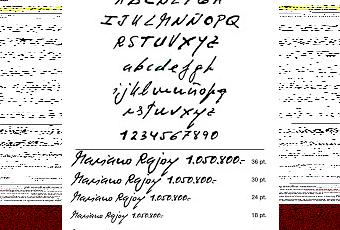 IJKLMNÑOPQ
RSTUVXYZ
abcdefgh
ijklmnñopq
rstuvxyz
1234567890
Mariano Rajoy 1.050.800.- 36 pt.
Mariano Rajoy 1.050.800.- 30 pt.
Mariano Rajoy 1.050.800.- 24 pt.
Mariano Rajoy 1.050.800.- 18 pt.